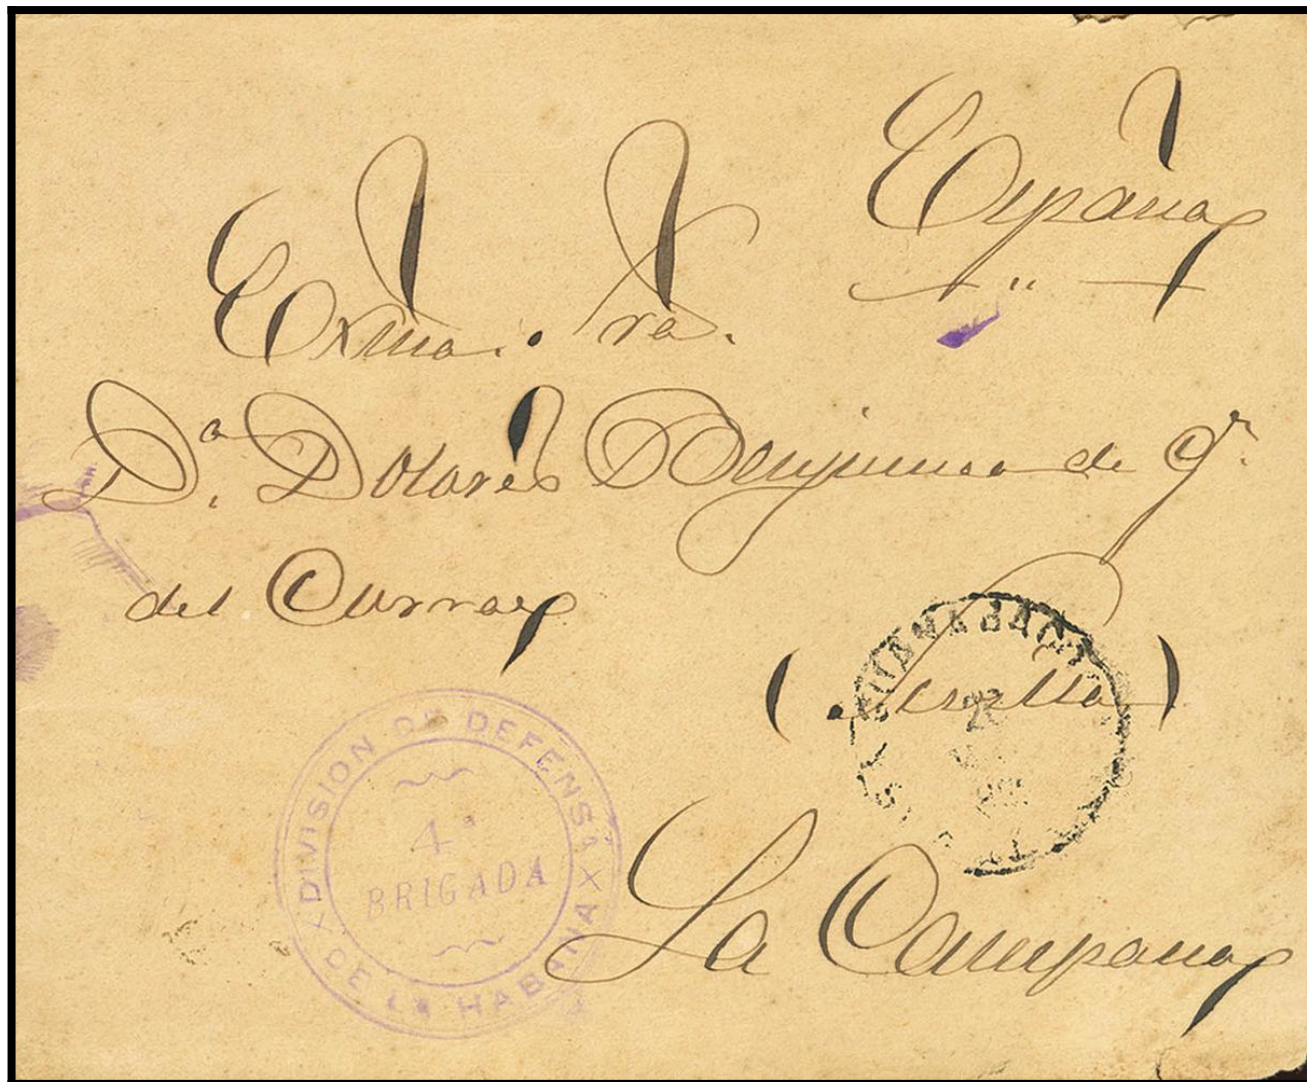 España
Exma. Sra.
Dª. Dolores Benjumea de Gr.
del Corral
(Sevilla)
La Campana
DIVISION DE DEFENSA
DE LA HABANA
4ª
BRIGADA
GUANABACOA